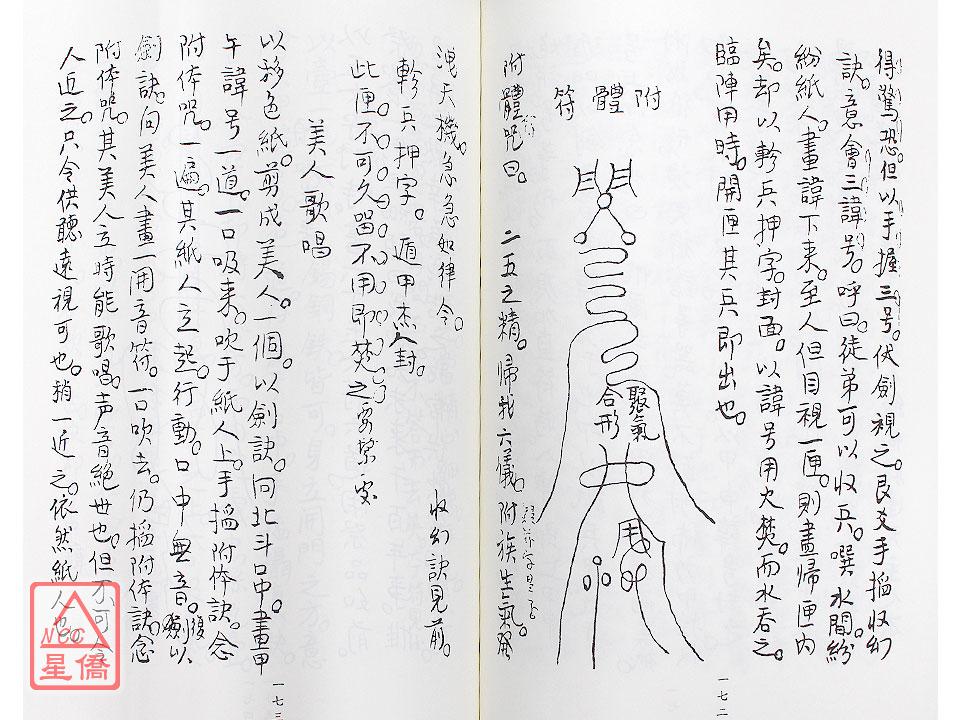 得驚恐。但以手握三号。伏劍視之。艮爻手搯收幻
訣。意會三諱号。呼曰。徒弟可以收兵。噀水間。紛
紛紙人。畫諱下来。至人但目視一匣。則盡歸匣内
矣。却以軫兵押字。封面。以諱号用火焚。而水吞之。
臨陣用時。開匣其兵即出也。
附體符
聚氣
合形
附體咒曰。二五之精。歸我六儀。附族生氣
一七二
洩天機。急急如律令。
收幻訣見前。
軫兵押字。遁甲杰人封。
此匣不可久留不用即焚之
美人歌唱
以彩色紙。剪成美人。一個。以劍訣。向北斗口中。畫甲
午諱号一道。一口吸来。吹于紙人上。手搯附体訣。念
附体咒。一遍。其紙人立起。行動。口中無音。復以
劍訣。向美人畫一用音符。一口吹去。仍搯附体訣。念
附体咒。其美人立時能歌唱。声音絕世也。但不可令
人近之。只令供聽遠視可也。稍一近之。依然紙人也。
一七三
星僑